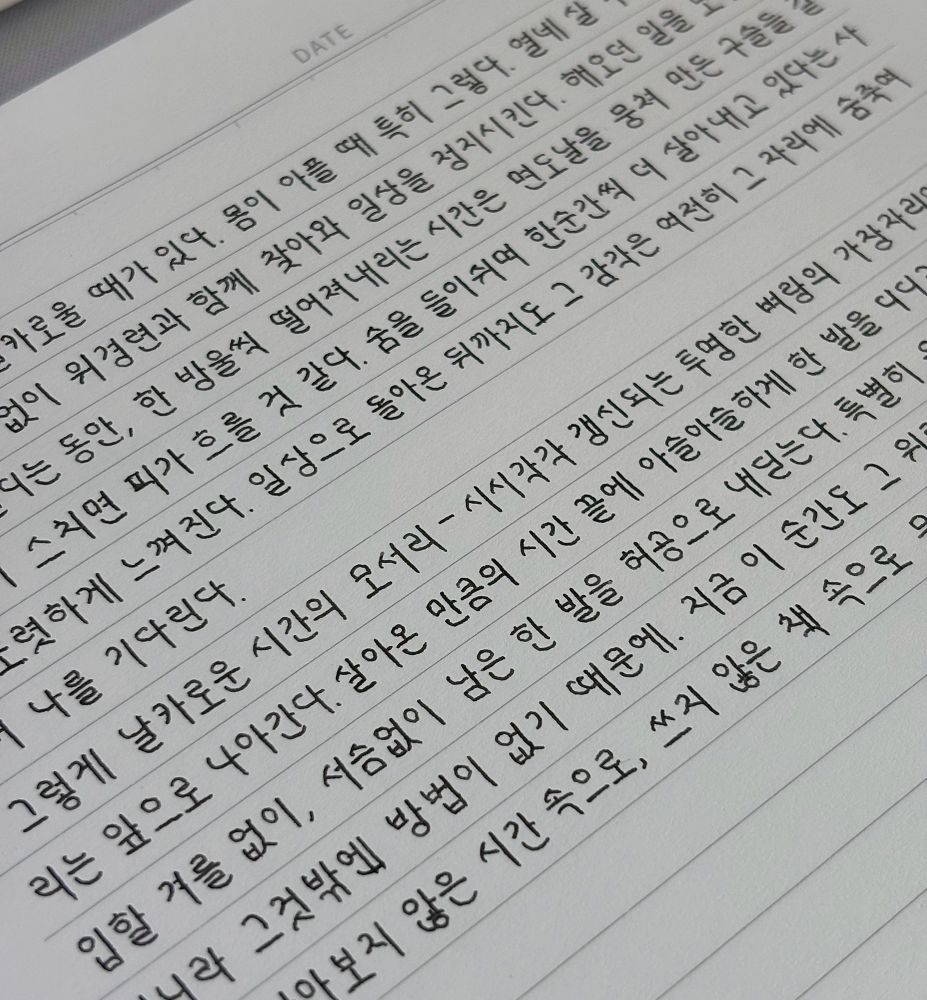 DATE
카로울 때가 있다. 몸이 아플 때 특히 그렇다. 열네 살
없이 위경련과 함께 찾아와 일상을 정지시킨다. 해오던 일을
디는 동안, 한 방울씩 떨어져내리는 시간은 면도날을 뭉쳐 만든 구슬들
스치면 피가 흐를 것 같다. 숨을 들이쉬며 한순간씩 더 살아내고 있다는 사
렷하게 느껴진다. 일상으로 돌아온 뒤까지도 그 감각은 여전히 그 자리에 숨죽여
나를 기다린다.
그렇게 날카로운 시간의 모서리 - 시시각각 갱신되는 투명한 벼랑의 가장자리
리는 앞으로 나아간다. 살아온 만큼의 시간 끝에 아슬아슬하게 한 발을 디디
입할 겨를 없이, 서슴없이 남은 한 발을 허공으로 내딛는다. 특별히
니라 그것밖엔 방법이 없기 때문에. 지금 이 순간도 그
아보지 않은 시간 속으로, 쓰지 않은 책 속으로